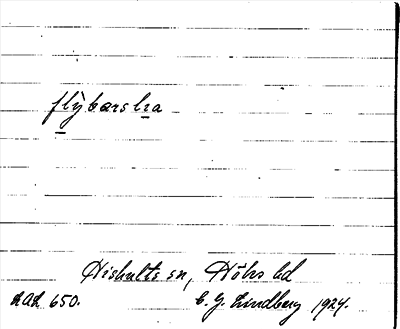 flybarsha
Hishults sn, Höks hd
AAA 650. C. G. Lindberg 1924.